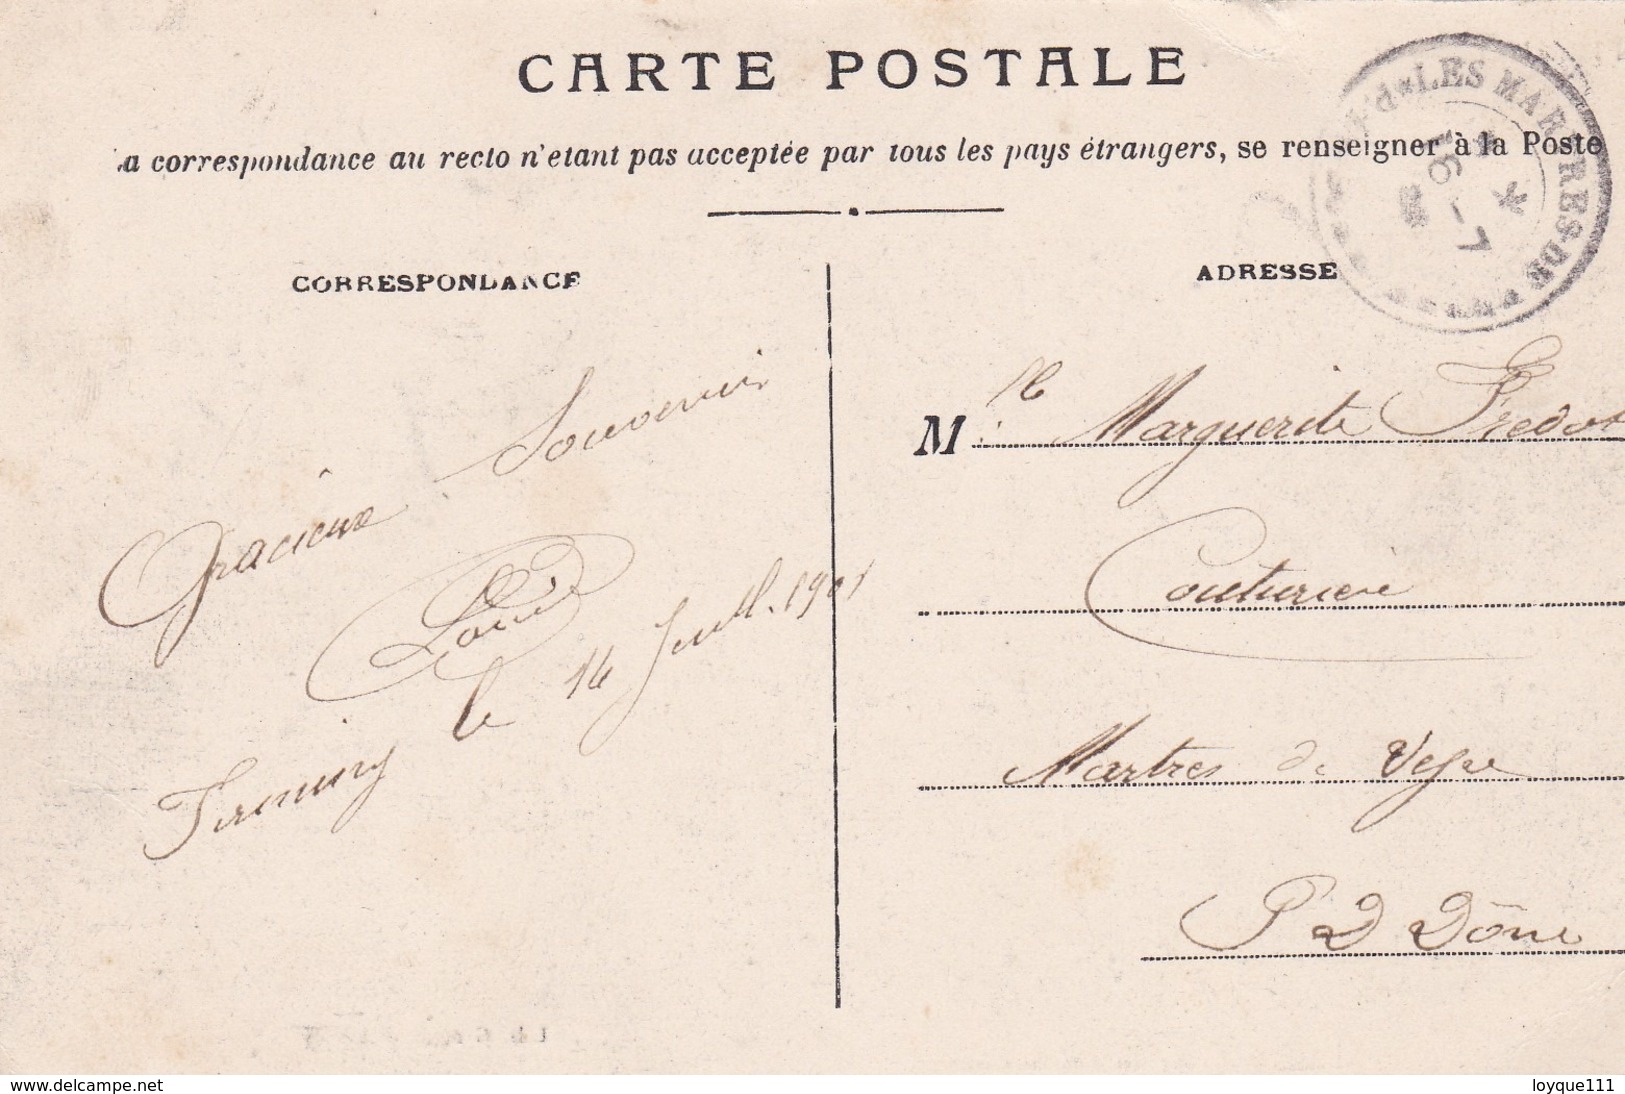 CARTE POSTALE
La correspondance au recto n'étant pas acceptée par tous les pays étrangers, se renseigner à la Poste
CORRESPONDANCE
ADRESSE
LES MARTRES-DE
16 - 7
Gracieux Souvenir
Louis
Firminy le 14 Juill. 1901
Mlle Marguerite Predot
Couturière
Martres de Veyre
P D Dôme
www.delcampe.net
loyque111